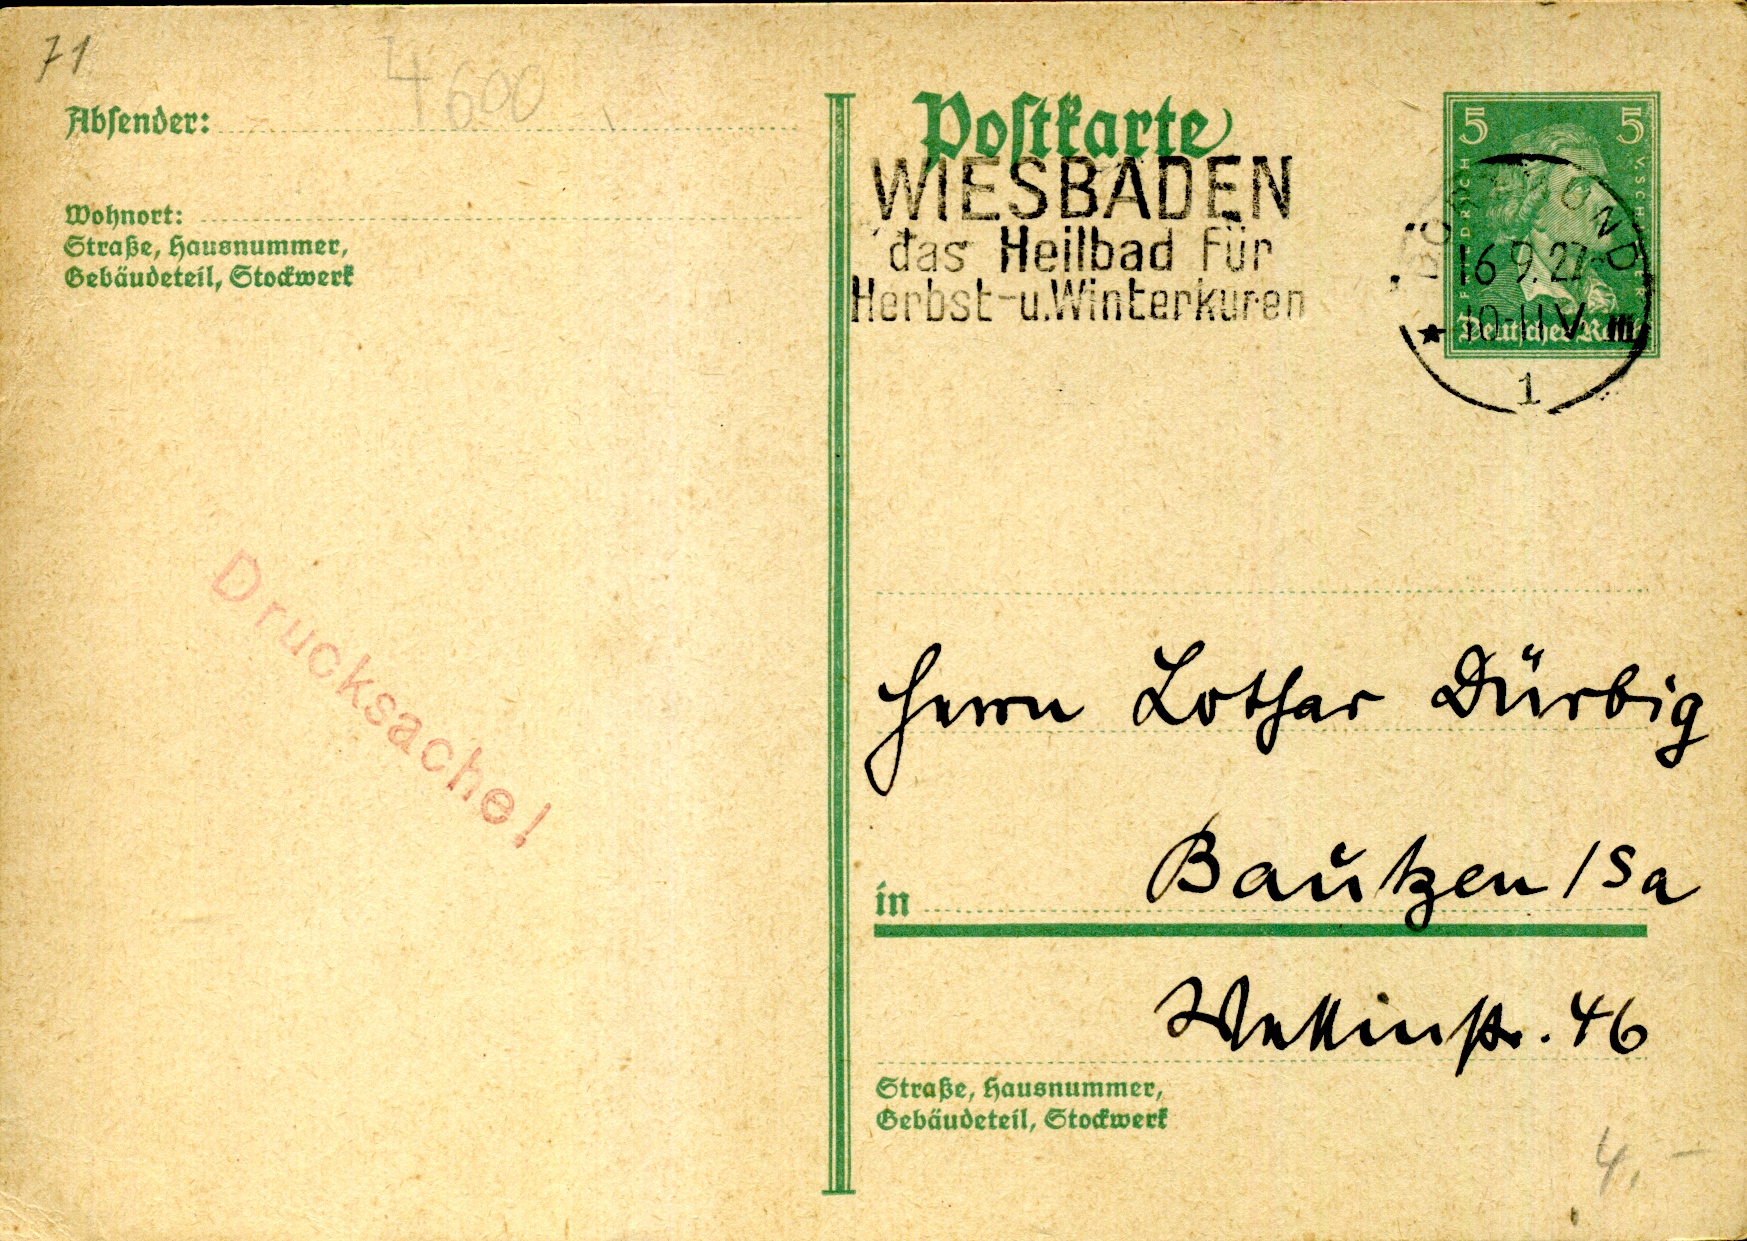 71
4600
Absender:
Wohnort:
Straße, Hausnummer,
Gebäudeteil, Stockwerk
Drucksache!
Postkarte
WIESBADEN
das Heilbad für
Herbst-u.Winterkuren
5 5
FRIEDRICH V SCHILLER
Deutsches Reich
DORTMUND
16.9.27.
10-11 V
1
Herrn Lothar Dürbig
in Bautzen /Sa
Wettinstr. 46
Straße, Hausnummer,
Gebäudeteil, Stockwerk
4,-